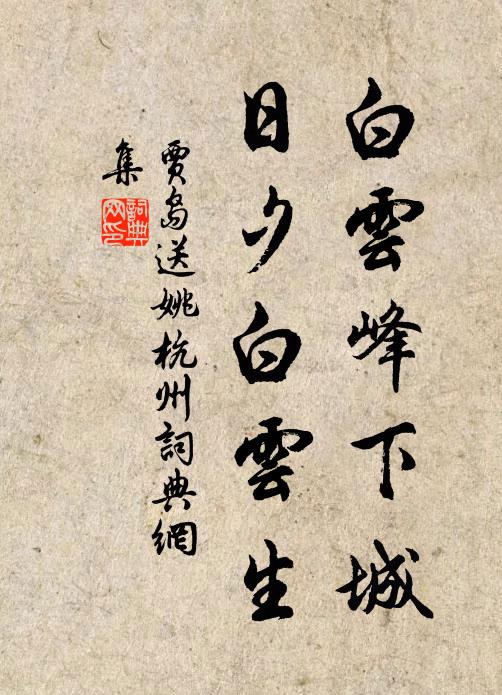 白雲峰下城
日夕白雲生
賈島送姚杭州詞典網
集
詞典
网印